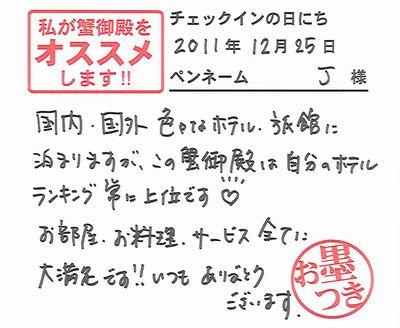 私が蟹御殿を
オススメ
します!!
チェックインの日にち
2011年 12月 25日
ペンネーム J 様
国内・国外 色々なホテル・旅館に
泊まりますが、この蟹御殿は自分のホテル
ランキング 常に上位です♡
お部屋・お料理・サービス 全てに
大満足です!! いつも ありがとう
ございます。
お墨つき